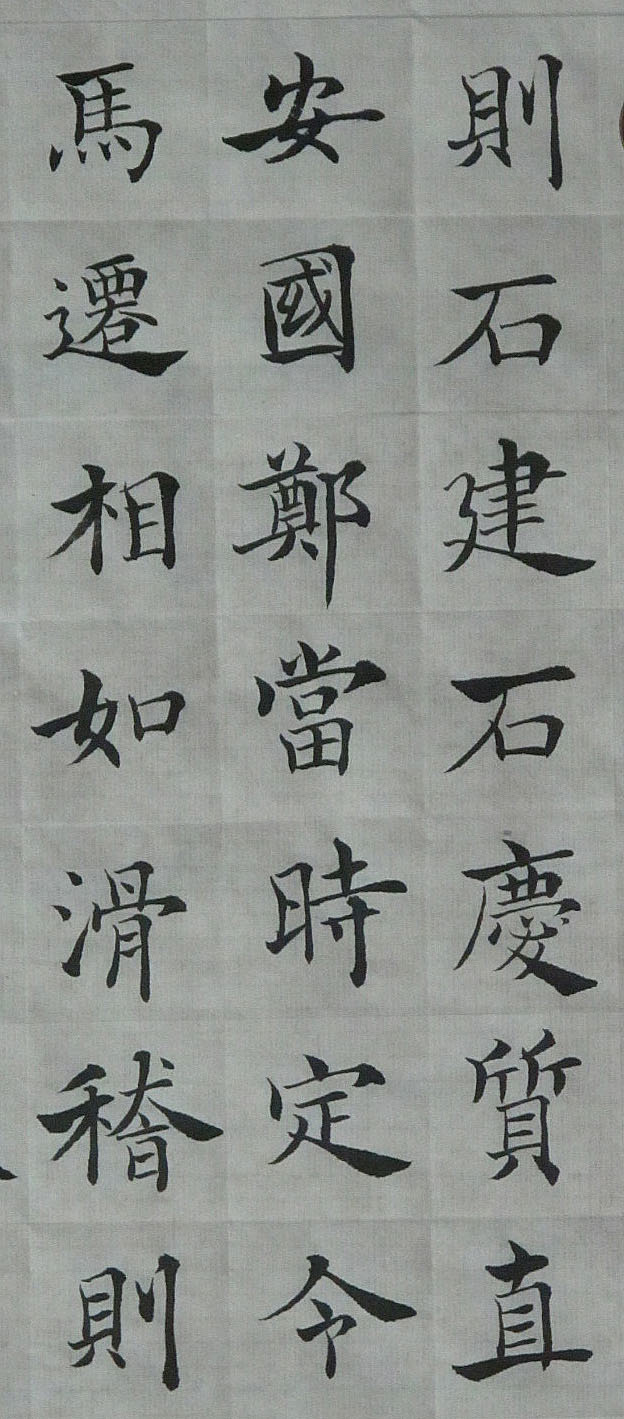 則石建石慶質直
安國鄭當時定令
馬遷相如滑稽則